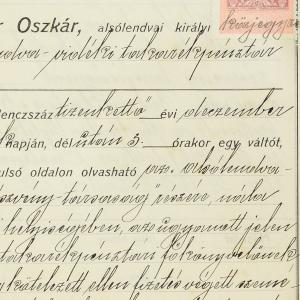 r Oszkár, alsólendvai királyi közjegyző
lendva-vidéki takarékpénztár
lenczszáz tizenkettő évi deczember
napján, délután 3 órakor egy váltót,
ulsó oldalon olvasható az alsólendva-
részvény-társaság részére, nála
helyiségében, az ugyanott jelen
takarékpénztári főkönyvelőnek
kötelezett ellen fizetés végett szem-